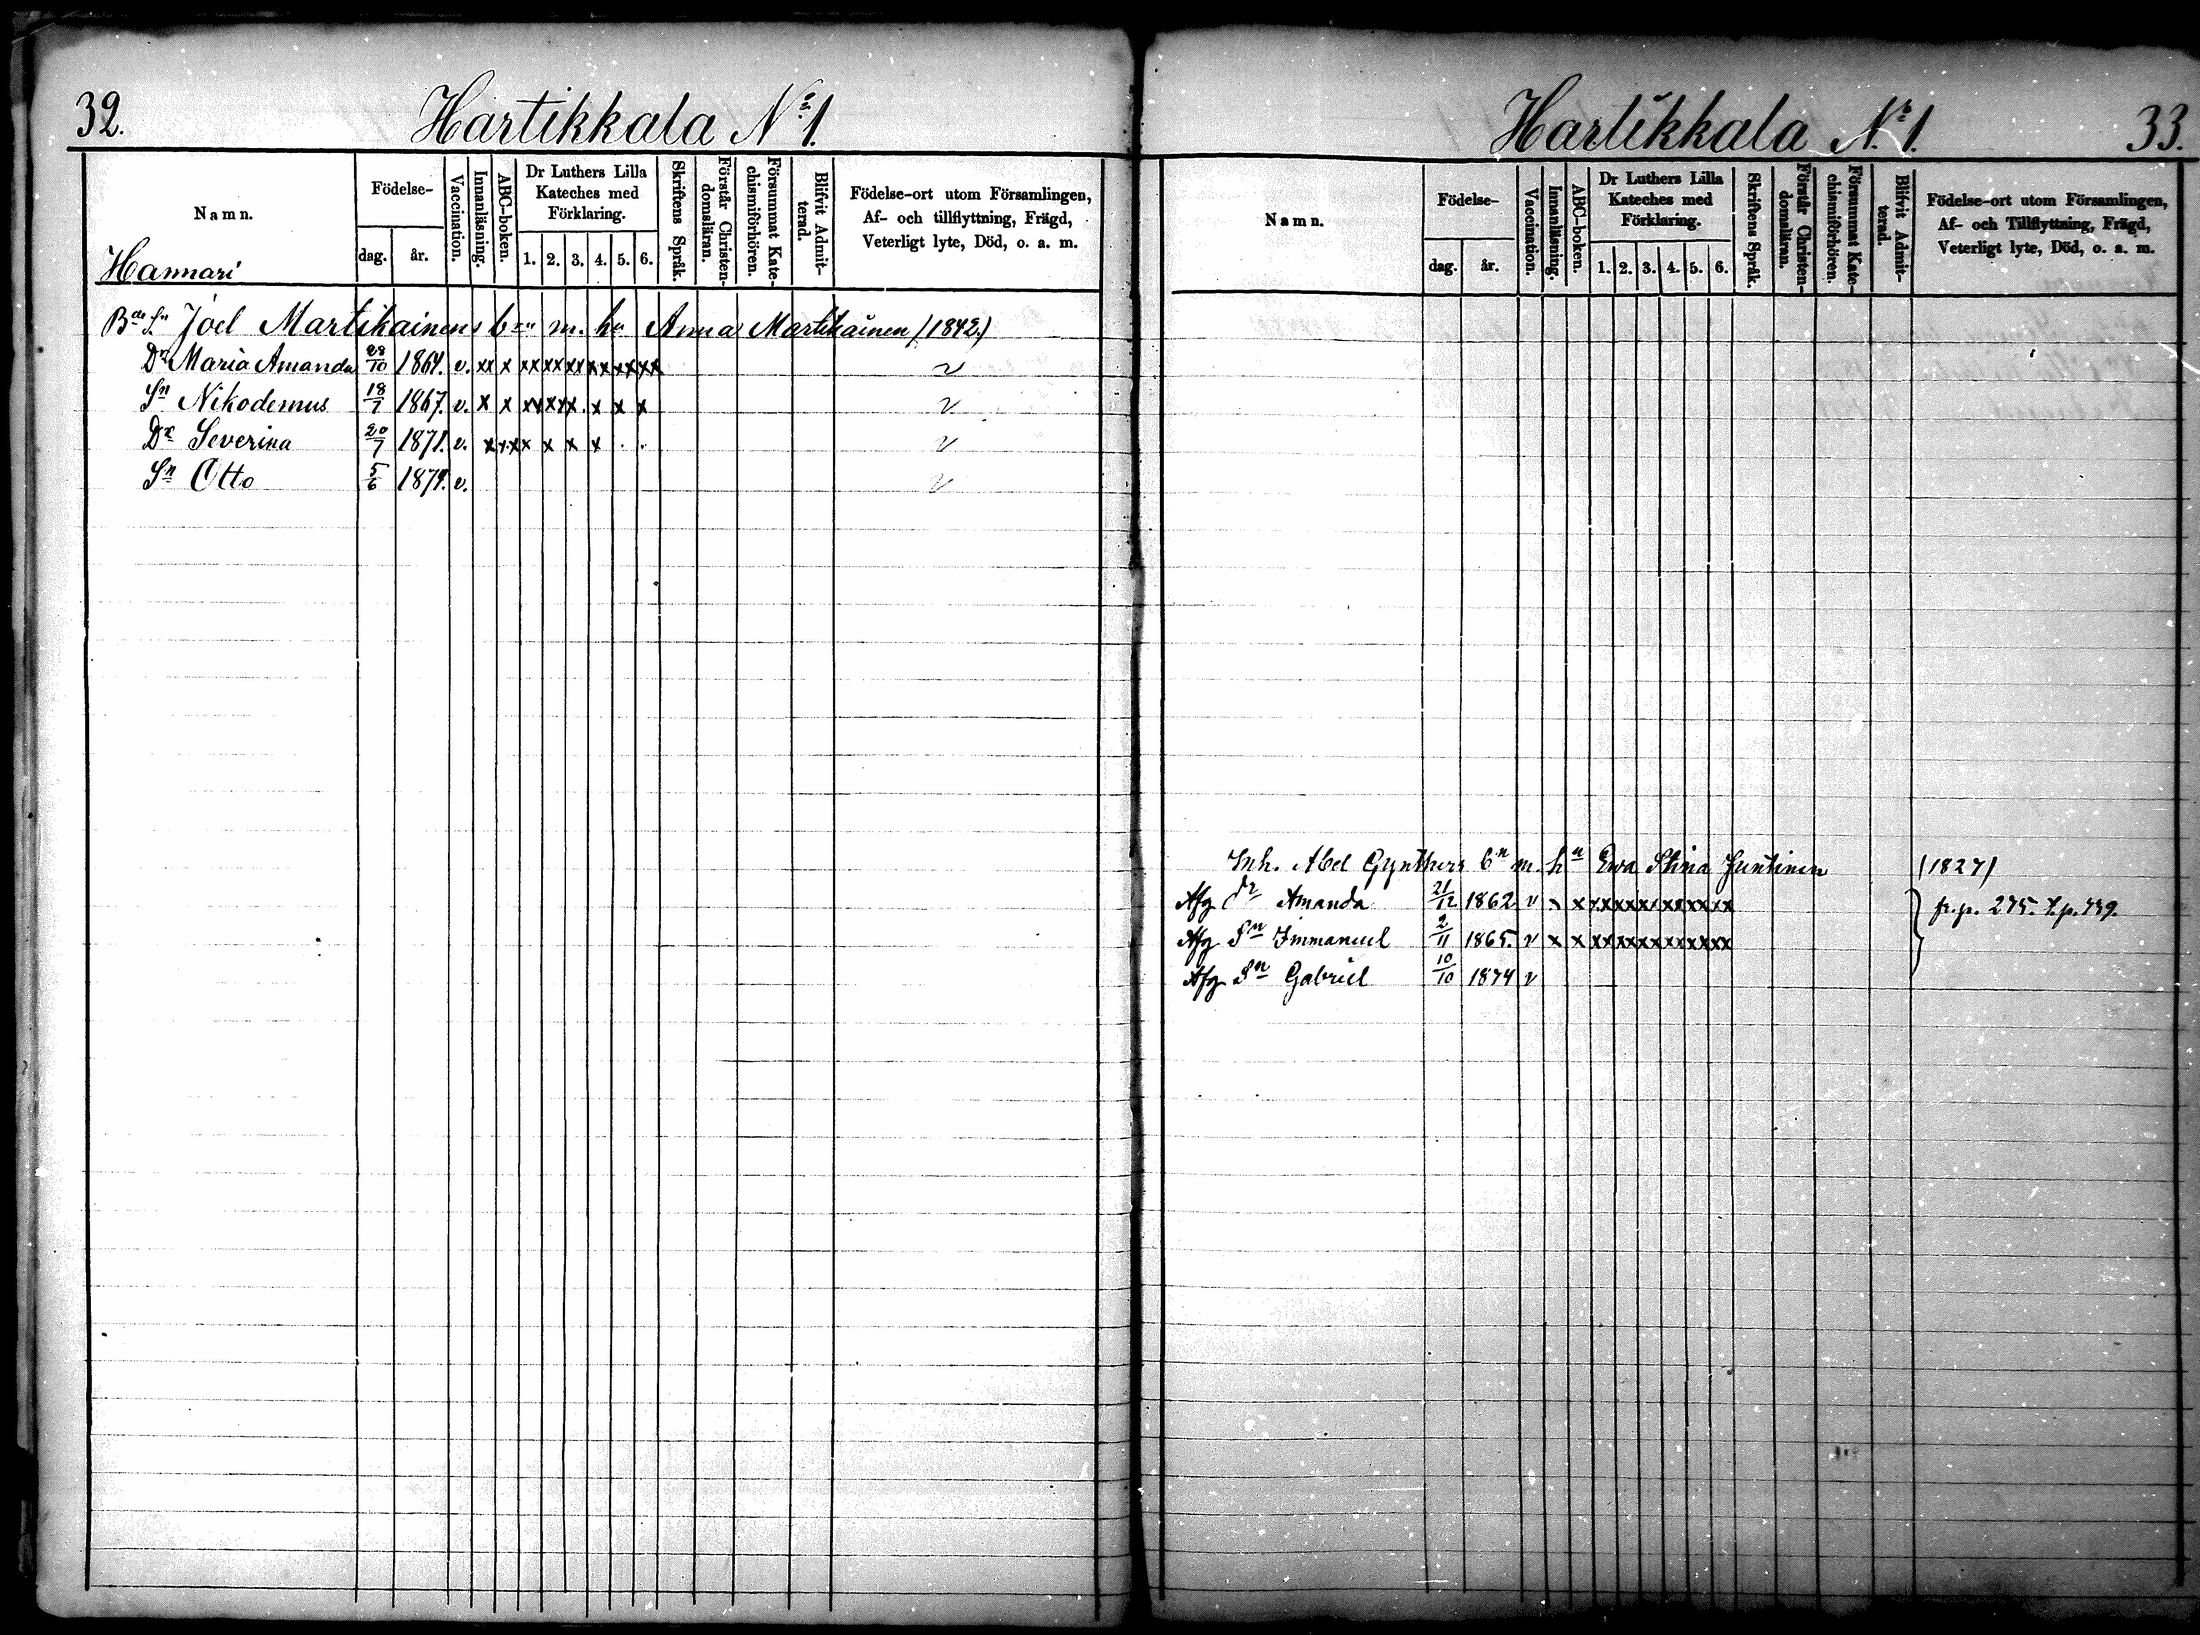 32.
Hartikkala Nr 1.
Namn.
Födelse-
dag.
år.
Vaccination.
Innanläsning.
ABC-boken.
Dr Luthers Lilla
Kateches med
Förklaring.
1. 2. 3. 4. 5. 6.
Skriftens Språk.
Förstår Christen-
domsläran.
Försummat Kate-
chismiförhören.
Blifvit Admit-
terad.
Födelse-ort utom Församlingen,
Af- och tillflyttning, Frägd,
Veterligt lyte, Död, o. a. m.
Hannari
Bde Sn Joel Martikainens bn m. hu Anna Martikainen (1842)
Dr Maria Amanda 28/10 1864. v. xx x xx xx xx xx xx xx v
Sn Nikodemus 18/7 1867. v. x x xx xx x x x x v
Dr Severina 20/7 1871. v. x x x x x x x . . v
Sn Otto 5/6 1874. v. v
Hartikkala Nr 1.
33.
Namn.
Födelse-
dag.
år.
Vaccination.
Innanläsning.
ABC-boken.
Dr Luthers Lilla
Kateches med
Förklaring.
1. 2. 3. 4. 5. 6.
Skriftens Språk.
Förstår Christen-
domsläran.
Försummat Kate-
chismiförhören.
Blifvit Admit-
terad.
Födelse-ort utom Församlingen,
Af- och Tillflyttning, Frägd,
Veterligt lyte, Död, o. a. m.
Inh. Abel Gynthers bn m. hu Ewa Stina Juntinen (1827)
Afg dr Amanda 21/12 1862 v x x xx xx xx xx xx xx fr.p. 275. T.p. 739.
Afg Sn Immanuel 2/11 1865. v x x xx xx xx xx xx xx
Afg Sn Gabriel 10/10 1874 v